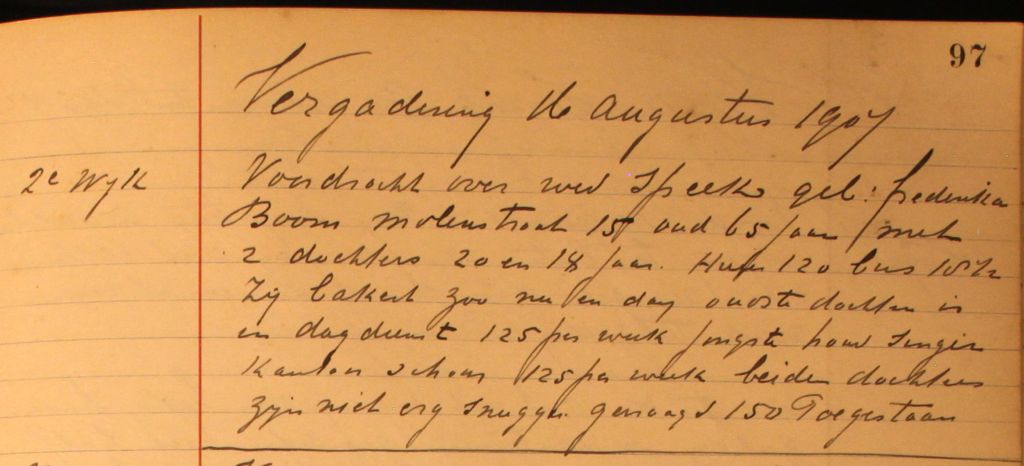 97
Vergadering 16 augustus 1907
2e Wyk
Voordracht over wed Speek geb: frederika
Boom molenstraat 15 oud 65 jaar met
2 dochters 20 en 18 jaar. Huur 120 bus
Zij bakert zoo nu en dan oudste dochter is
in dagdienst 125 per week jongste houd
Kantoor schoon 125 per week beiden dochters
zyn niet erg snugger gevraagd 150 Toegestaan